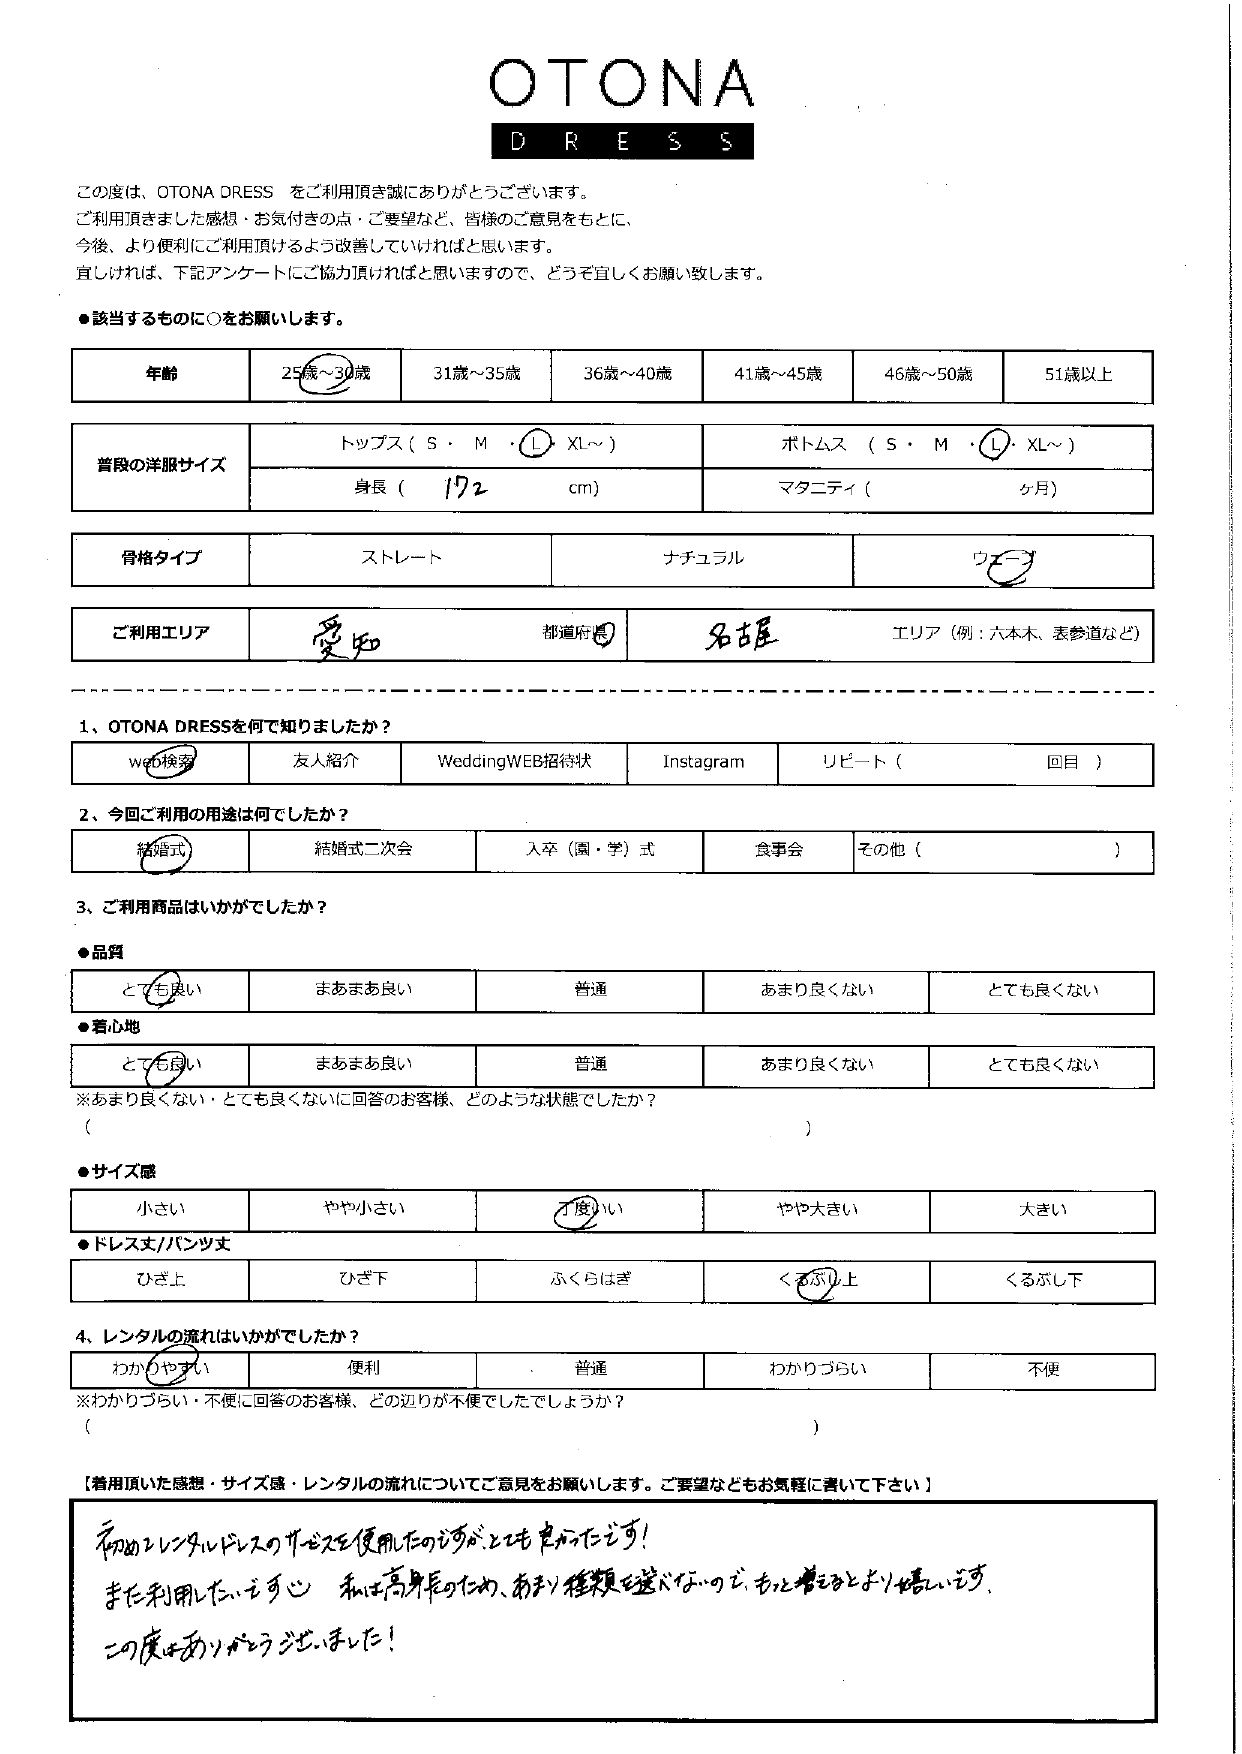 OTONA
DRESS
この度は、OTONA DRESS をご利用頂き誠にありがとうございます。
ご利用頂きました感想・お気付きの点・ご要望など、皆様のご意見をもとに、
今後、より便利にご利用頂けるよう改善していければと思います。
宜しければ、下記アンケートにご協力頂ければと思いますので、どうぞ宜しくお願い致します。
●該当するものに○をお願いします。
年齢 25歳～30歳 31歳～35歳 36歳～40歳 41歳～45歳 46歳～50歳 51歳以上
普段の洋服サイズ トップス ( S ・ M ・ L ・ XL～ ) ボトムス ( S ・ M ・ L ・ XL～ )
身長 ( 172 cm) マタニティ ( ヶ月)
骨格タイプ ストレート ナチュラル ウェーブ
ご利用エリア 愛知 都道府県 名古屋 エリア（例：六本木、表参道など）
1、OTONA DRESSを何で知りましたか？
web検索 友人紹介 WeddingWEB招待状 Instagram リピート（ 回目 ）
2、今回ご利用の用途は何でしたか？
結婚式 結婚式二次会 入卒（園・学）式 食事会 その他（ ）
3、ご利用商品はいかがでしたか？
●品質
とても良い まあまあ良い 普通 あまり良くない とても良くない
●着心地
とても良い まあまあ良い 普通 あまり良くない とても良くない
※あまり良くない・とても良くないに回答のお客様、どのような状態でしたか？
（ ）
●サイズ感
小さい やや小さい 丁度いい やや大きい 大きい
●ドレス丈/パンツ丈
ひざ上 ひざ下 ふくらはぎ くるぶし上 くるぶし下
4、レンタルの流れはいかがでしたか？
わかりやすい 便利 普通 わかりづらい 不便
※わかりづらい・不便に回答のお客様、どの辺りが不便でしたでしょうか？
（ ）
【着用頂いた感想・サイズ感・レンタルの流れについてご意見をお願いします。ご要望などもお気軽に書いて下さい】
初めてレンタルドレスのサービスを使用したのですが、とても良かったです！
また利用したいです 私は高身長のため、あまり種類を選べないので、もっと増えるとより嬉しいです。
この度はありがとうございました！